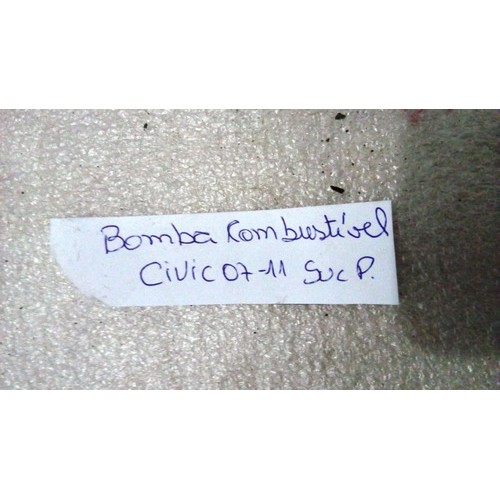 Bomba Combustível
Civic 07-11 Suc P.